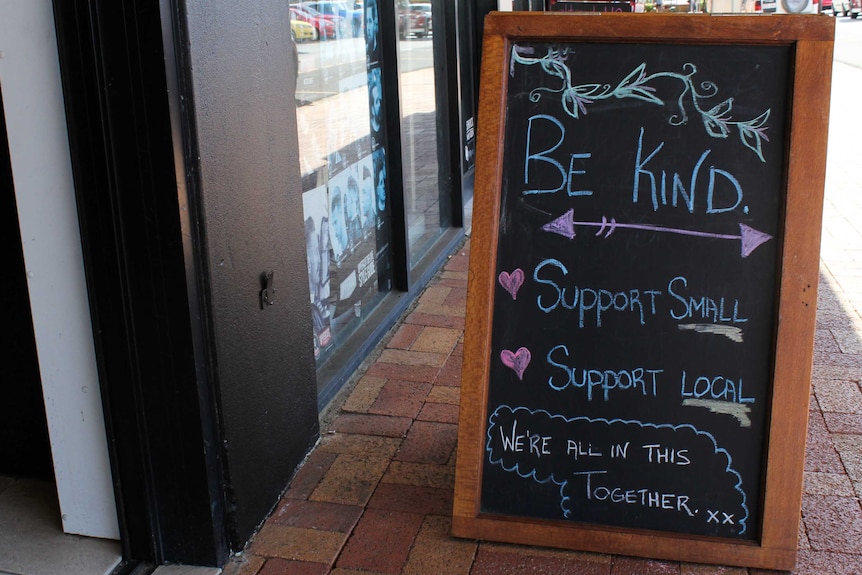 Be Kind.
Support Small
Support Local
We're all in this
Together. xx